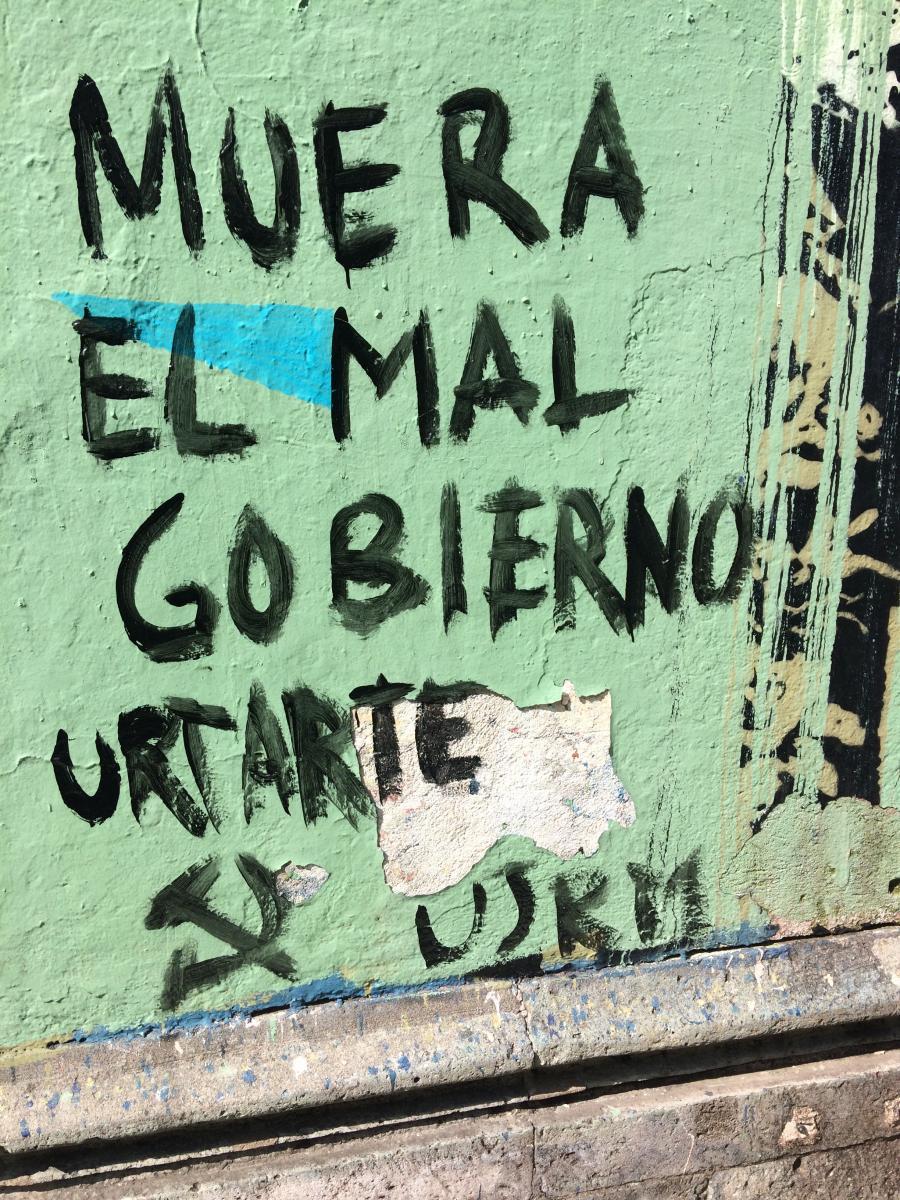 MUERA
EL MAL
GOBIERNO
URTARTE
UJRM